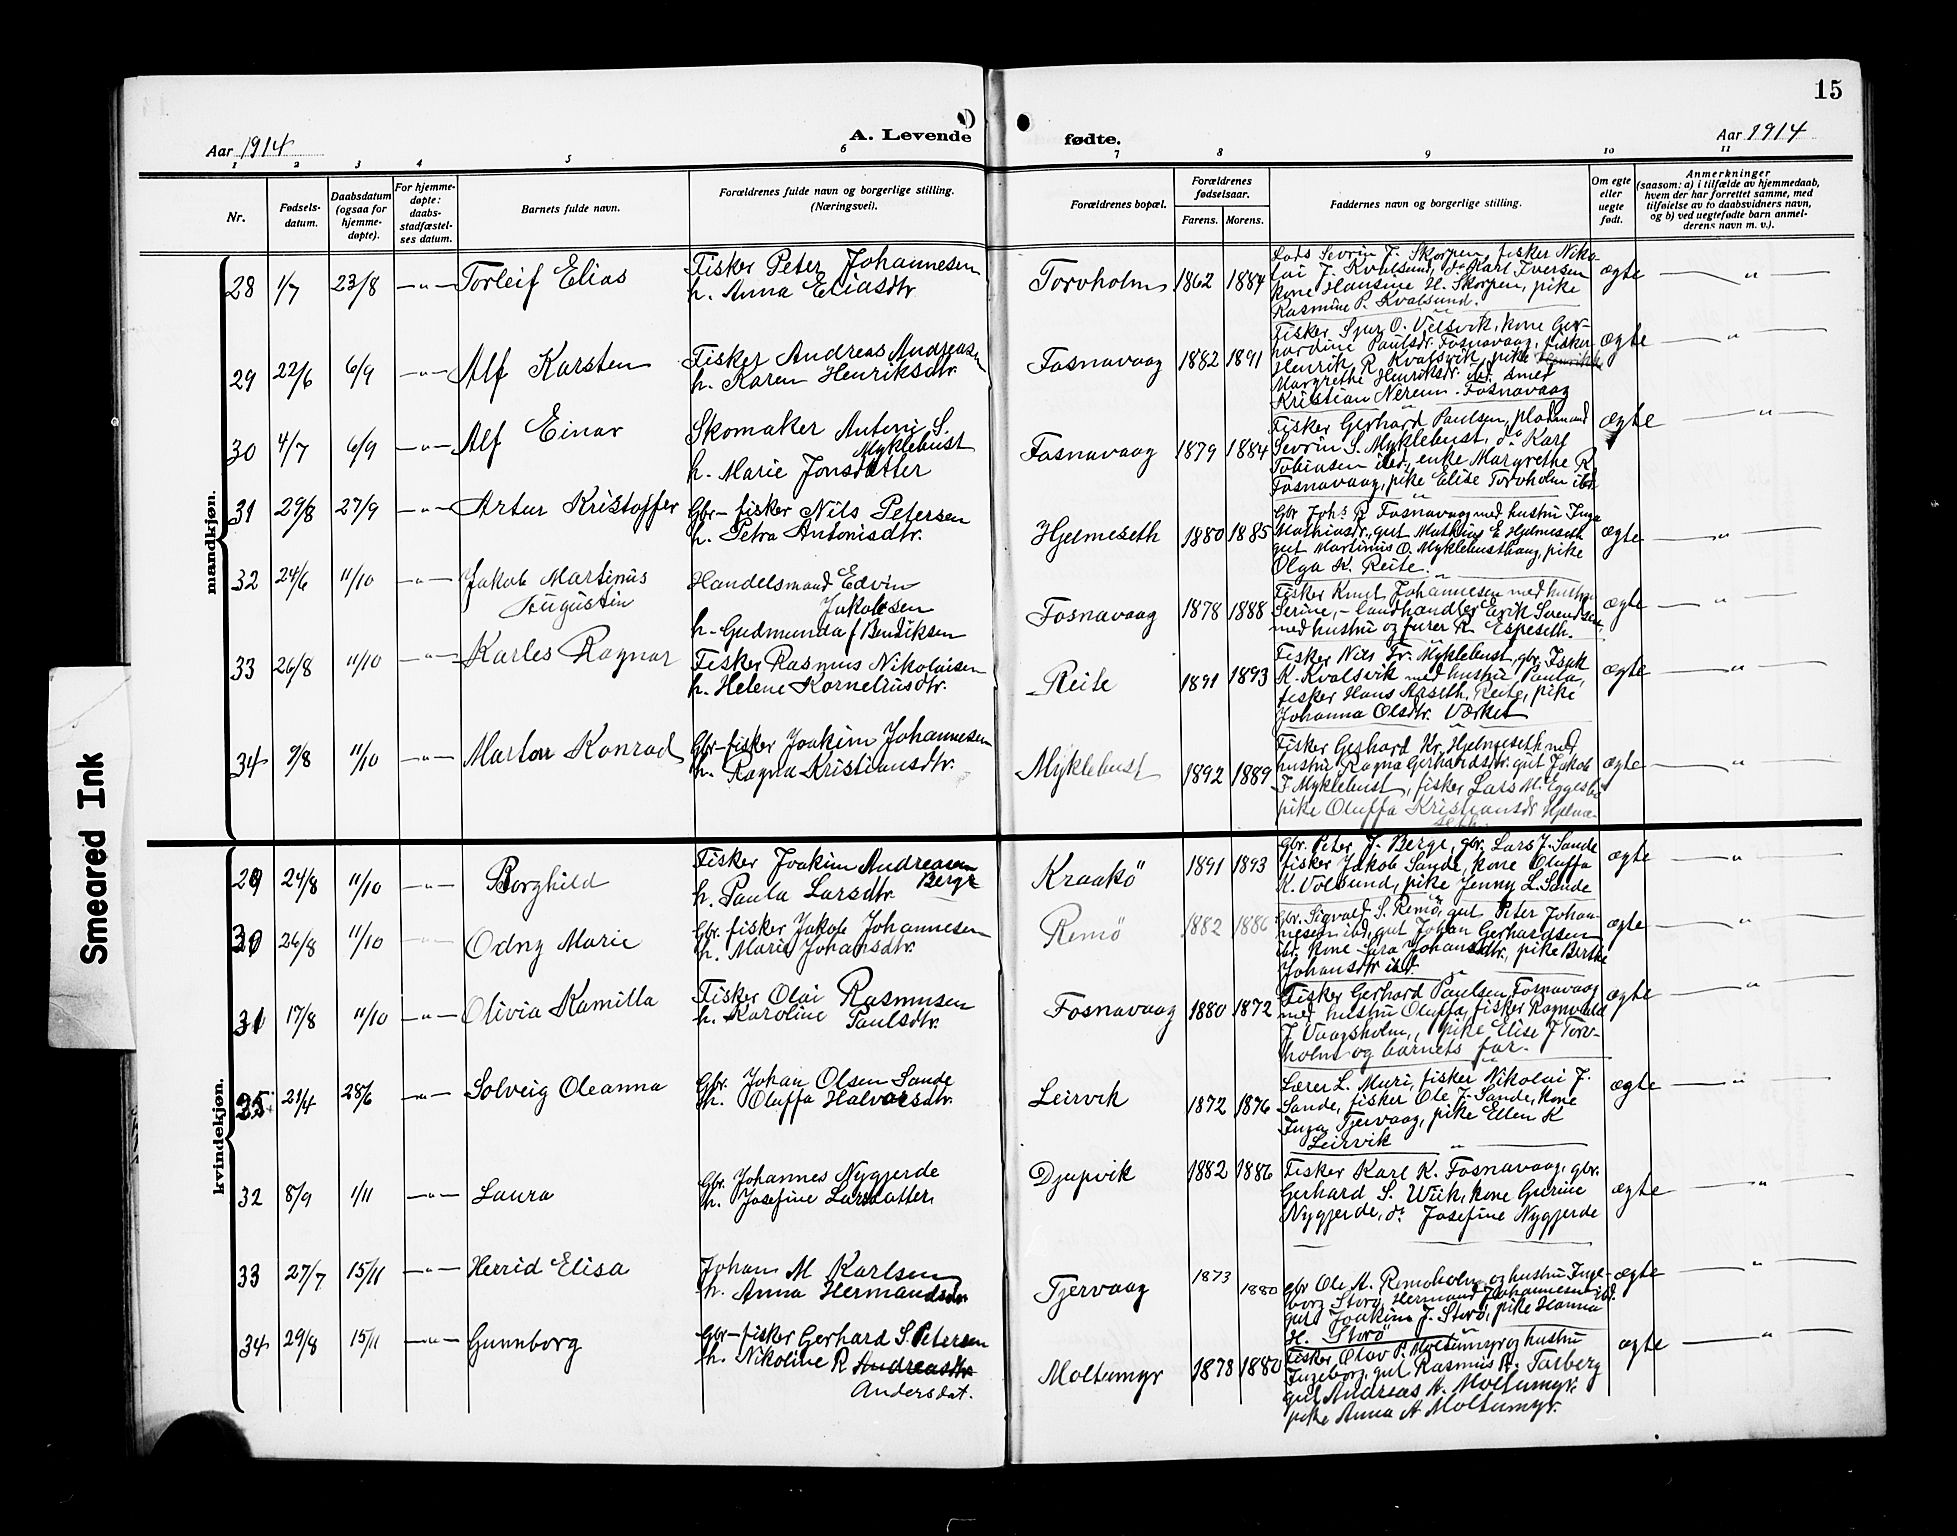 15
Aar 1914
A. Levende
fødte.
Aar 1914
1 2 3 4 5 6 7 8 9 10 11
Nr.
Fødsels-
datum.
Daabsdatum
(ogsaa for
hjemme-
døpte).
For hjemme-
døpte:
daabs-
stadfæstel-
ses datum.
Barnets fulde navn.
Forældrenes fulde navn og borgerlige stilling.
(Næringsvei).
Forældrenes bopæl.
Forældrenes
fødselsaar.
Farens. Morens.
Faddernes navn og borgerlige stilling.
Om egte
eller
uegte
født.
Anmerkninger
(saasom: a) i tilfælde av hjemmedaab,
hvem der har forrettet samme, med
tilføielse av to daabsvidners navn,
og b) ved uegtefødte barn anmel-
derens navn m. v.).
mandkjøn.
28 1/7 23/8 —"— Torleif Elias
Fisker Peter Johannesen
h. Anna Eliasdtr.
Torvholm 1862 1884
Lods Sevrin J. Skorpen, fisker Niko-
lai J. Kvalsund, do Karl Iversen
kone Hansine H. Skorpen, pike
Rasmine P. Kvalsund.
ægte —"—
29 22/6 6/9 —"— Alf Karsten
Fisker Andreas Andreasen
h. Karen Henriksdtr.
Fosnavaag 1882 1891
Fisker Sjur O. Velsvik, kone Ger-
hardine Paulsdr. Fosnavaag, fisker
Henrik R. Kvalsvik, pike
Margrethe Henriksdr. ibd. smed
Kristian Nerem. Fosnavaag
ægte —"—
30 4/7 6/9 —"— Alf Einar
Skomaker Antoni S.
Myklebust
h. Marie Jonsdatter
Fosnavaag 1879 1884
Fisker Gerhard Paulsen, pladsmand
Sevrin S. Myklebust, do Karl
Tobiasen ibd., enke Margrethe R.
Fosnavaag, pike Elise Torvholm ibd.
ægte —"—
31 29/8 27/9 —"— Artur Kristoffer
Gbr-fisker Nils Petersen
h. Petra Antonisdtr.
Hjelmeseth 1880 1885
Gbr Johs R. Fosnavaag med hustru Inga
Mathiasdr., gut Mathias E. Hjelmeseth
gut Martinus O. Myklebusthaug, pike
Olga K. Reite.
ægte —"—
32 24/6 11/10 —"— Jakob Martinus
Augustin
Handelsmand Edvin
Jakobsen
h. Gudmunda f. Bendiksen
Fosnavaag 1878 1888
Fisker Knut Johannesen med hustru
Serine, – landhandler Eerik Svendsen
med hustru og furer R. Espeseth.
ægte —"—
33 26/8 11/10 —"— Karles Ragnar
Fisker Rasmus Nikolaisen
h. Helene Korneliusdtr.
Reite 1891 1893
Fisker Nils Fr. Myklebust, gbr. Isak
K. Kvalsvik med hustru Paula,
fisker Hans Aaseth, Reite, pike
Johanna Olsdtr. Værket
ægte —"—
34 9/8 11/10 —"— Marton Konrad
Gbr-fisker Joakim Johannesen
h. Ragna Kristiansdtr.
Myklebust 1892 1889
Fisker Gerhard Kr. Hjelmeseth med
hustru Ragna Gerhardsdtr. gut Jakob
J. Myklebust, fisker Lars M. Eggesbø
pike Oluffa Kristiansdr Hjelme-
seth.
ægte —"—
kvindekjøn.
29 24/8 11/10 —"— Borghild
Fisker Joakim Andreasen
Berge
h. Paula Larsdtr.
Kraakö 1891 1893
Gbr. Peter J. Berge, gbr. Lars J. Sande
fisker Jakob Sande, kone Oluffa
K. Volsund, pike Jenny L. Sande
ægte —"—
30 26/8 11/10 —"— Odny Marie
Gbr. fisker Jakob Johannesen
h. Marie Johansdtr.
Remö 1882 1886
Gbr. Sigvald S. Remö, gut Peter Johan-
nesen ibd, gut Johan Gerhardsen
ibd. kone Sara Johansdtr., pike Berthe
Johansdtr ibd.
ægte —"—
31 17/8 11/10 —"— Olivia Kamilla
Fisker Olai Rasmusen
h. Karoline Paulsdtr.
Fosnavaag 1880 1872
Fisker Gerhard Paulsen, Fosnavaag
med hustru Oluffa, fisker Ragnvald
J. Vaagsholm, pike Elise J. Torv-
holm og barnets far.
ægte —"—
25 21/4 28/6 —"— Solveig Oleanna
Gbr. Johan Olsen Sande
h. Oluffa Halvorsdtr.
Leirvik 1872 1876
Lærer L. Muri, fisker Nikolai J.
Sande, fisker Ole J. Sande, kone
Inga Tjervaag, pike Ellen K
Leirvik
ægte —"—
32 8/9 1/11 —"— Laura
Gbr. Johannes Nygjerde
h. Josefine Larsdatter.
Djupvik 1882 1886
Fisker Karl K. Fosnavaag, gbr.
Gerhard S. Wiik, kone Gurine
Nygjerde, do Josefine Nygjerde
ægte —"—
33 27/7 15/11 —"— Herrid Elisa
Johan M Karlsen
h. Anna Hermandsdtr.
Tjervaag 1873 1880
Gbr Ole A. Remøholm og hustru Inge-
borg Storø, Hermand Johannesen ibd.
gut Joakim J. Storø, pike Hanna
H. Storø
ægte —"—
34 29/8 15/11 —"— Gunnborg
Gbr-fisker Gerhard S. Petersen
h. Nikoline R. Andreasdtr
Andersdat.
Moltumyr 1878 1880
Fisker Olav P. Moltumyr og hustru
Ingeborg, gut Rasmus A. Torberg
gut Andreas A. Moltumyr.
pike Anna A Moltumyr.
ægte —"—
Smeared Ink